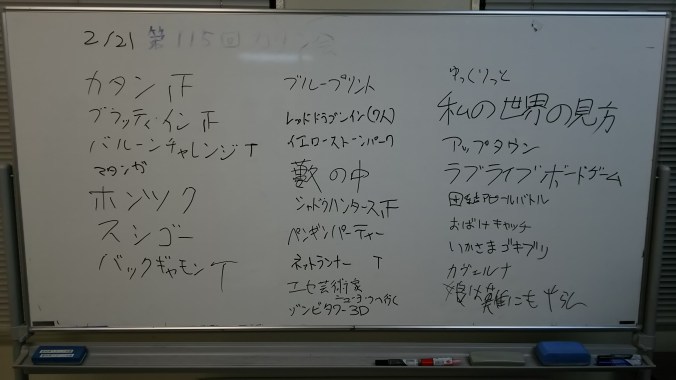 2/21 第115回カタン会
カタン 正
ブラッディ・イン 正
バルーンチャレンジ T
マタンガ
ホンツク
スシゴー
バックギャモン T
ブループリント
レッドドラゴンイン(7人)
イエローストーンパーク
藪の中
シャドウハンターズ 正
ペンギンパーティー
ネットランナー T
エセ芸術家
ニューヨークへ行く
ゾンビタワー3D
ゆっくりっと
私の世界の見方
アップタウン
ラブライブボードゲーム
おばけキャッチ
いかさまゴキブリ
カヴェルナ
娘は誰にもやらん